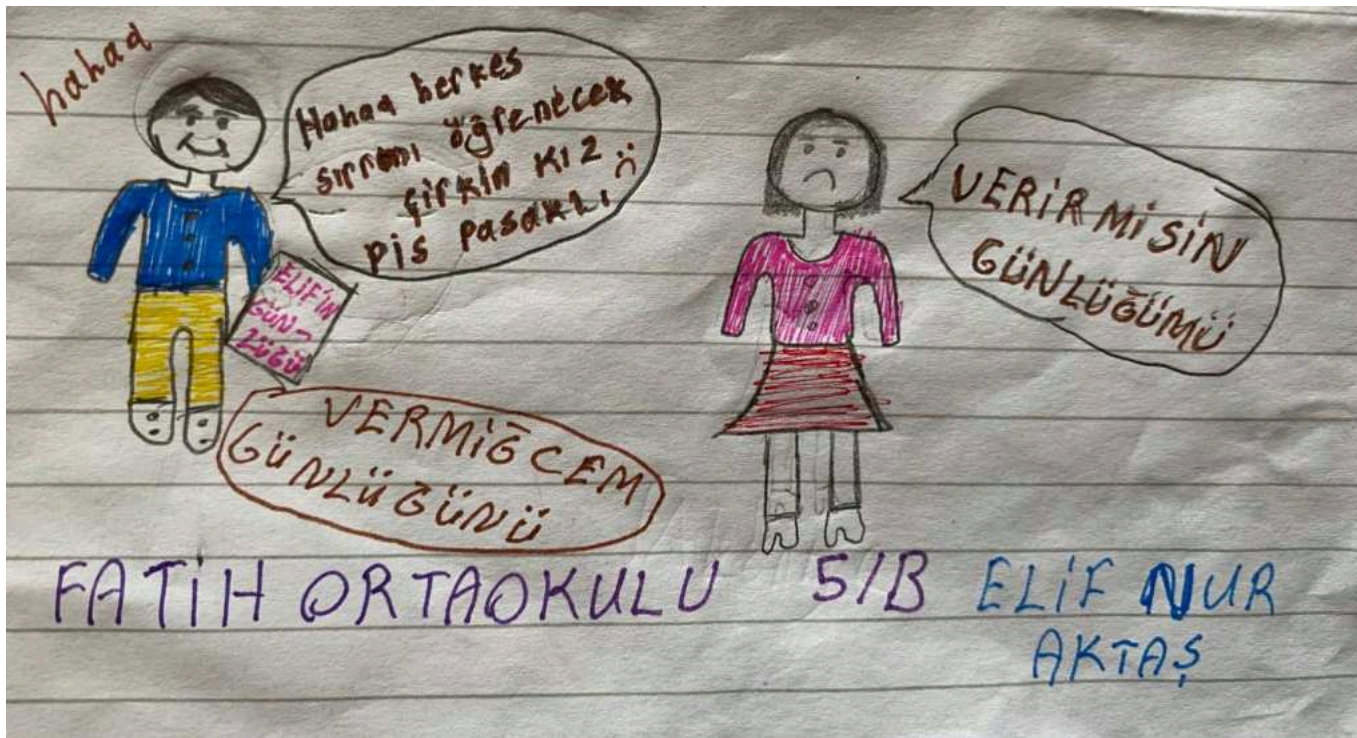 hahaa
Hahaa herkes
sırrını öğrenecek
çirkin kız
pis pasaklı :(
ELİF'İN
GÜN-
LÜĞÜ
VERMİĞCEM
GÜNLÜĞÜNÜ
VERİR MİSİN
GÜNLÜĞÜMÜ
FATİH ORTAOKULU 5/B ELİF NUR
AKTAŞ